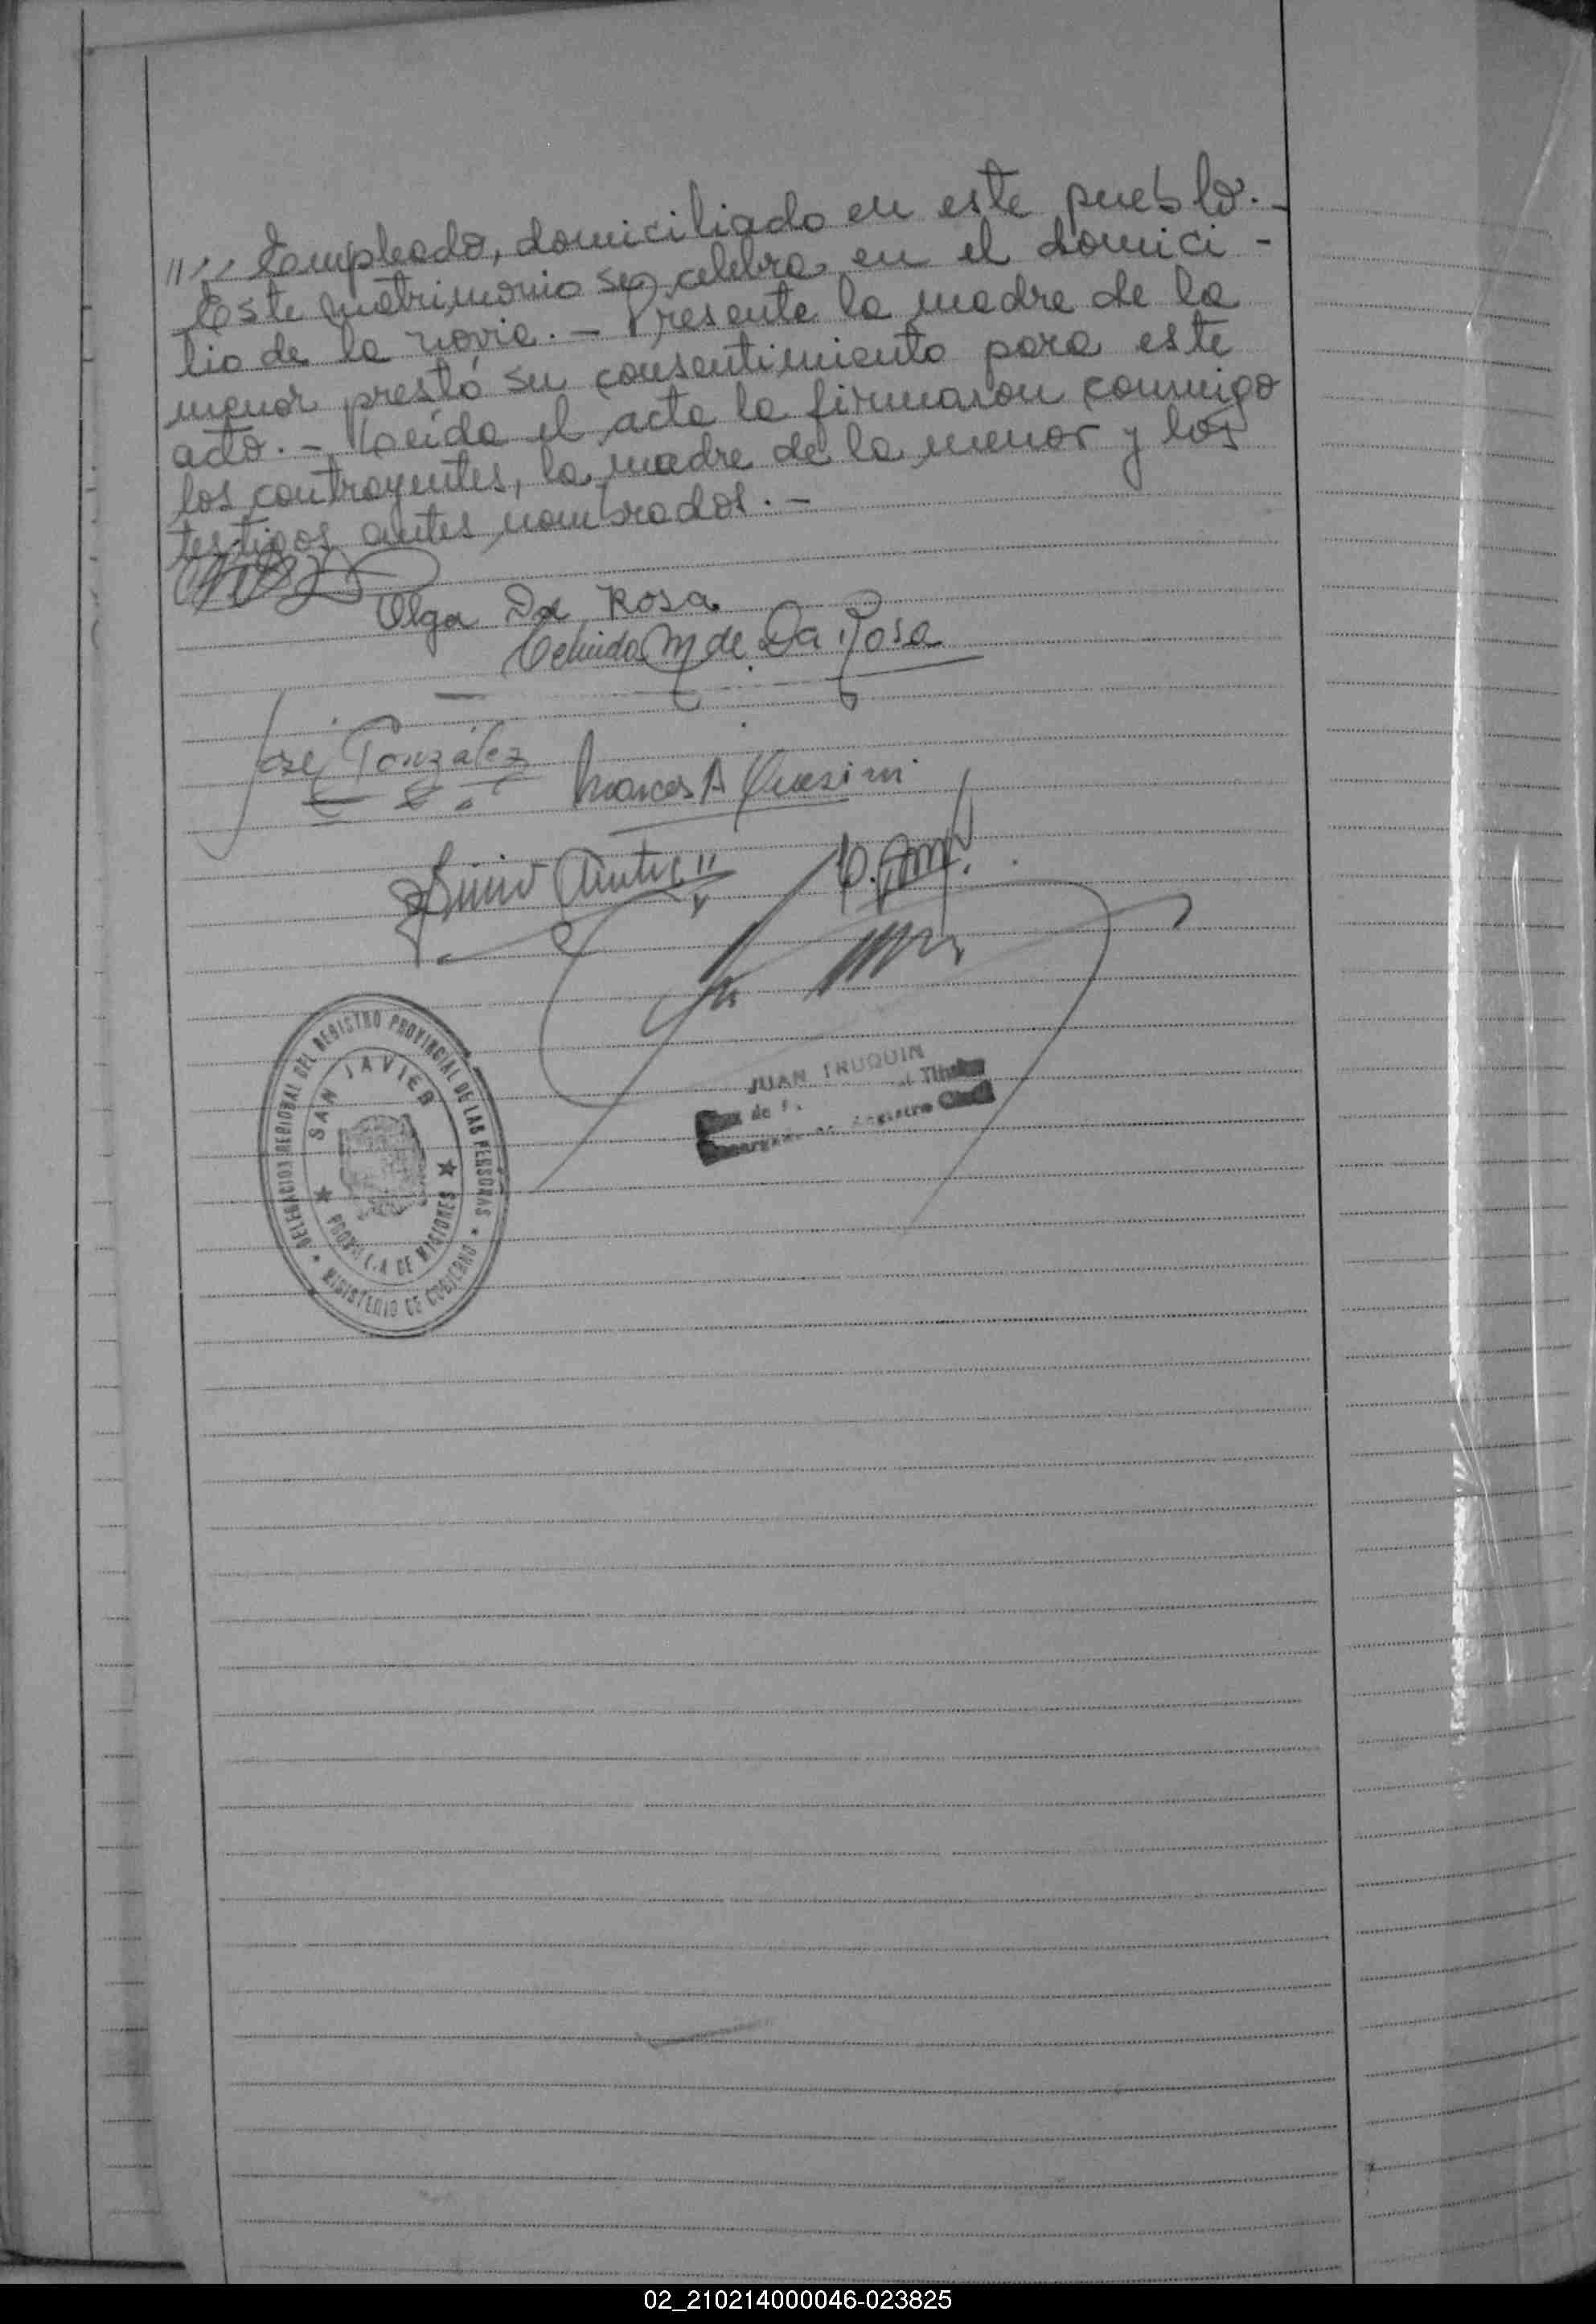 "// Empleado, domiciliado en este pueblo.-
Este matrimonio se celebra en el domici-
lio de la novia.- Presente la madre de la
menor prestó su consentimiento para este
acto.- Leída el acta la firmaron conmigo
los contrayentes, la madre de la menor y los
testigos antes nombrados.-
Olga Da Rosa
M de Da Rosa
José González
Marcos A
DELEGACION REGIONAL DEL REGISTRO PROVINCIAL DE LAS PERSONAS
SAN JAVIER
PROVINCIA DE MISIONES
MINISTERIO DE GOBIERNO
JUAN TRUQUIN
Juez de Titular
Encargado Registro Civil
02_210214000046-023825